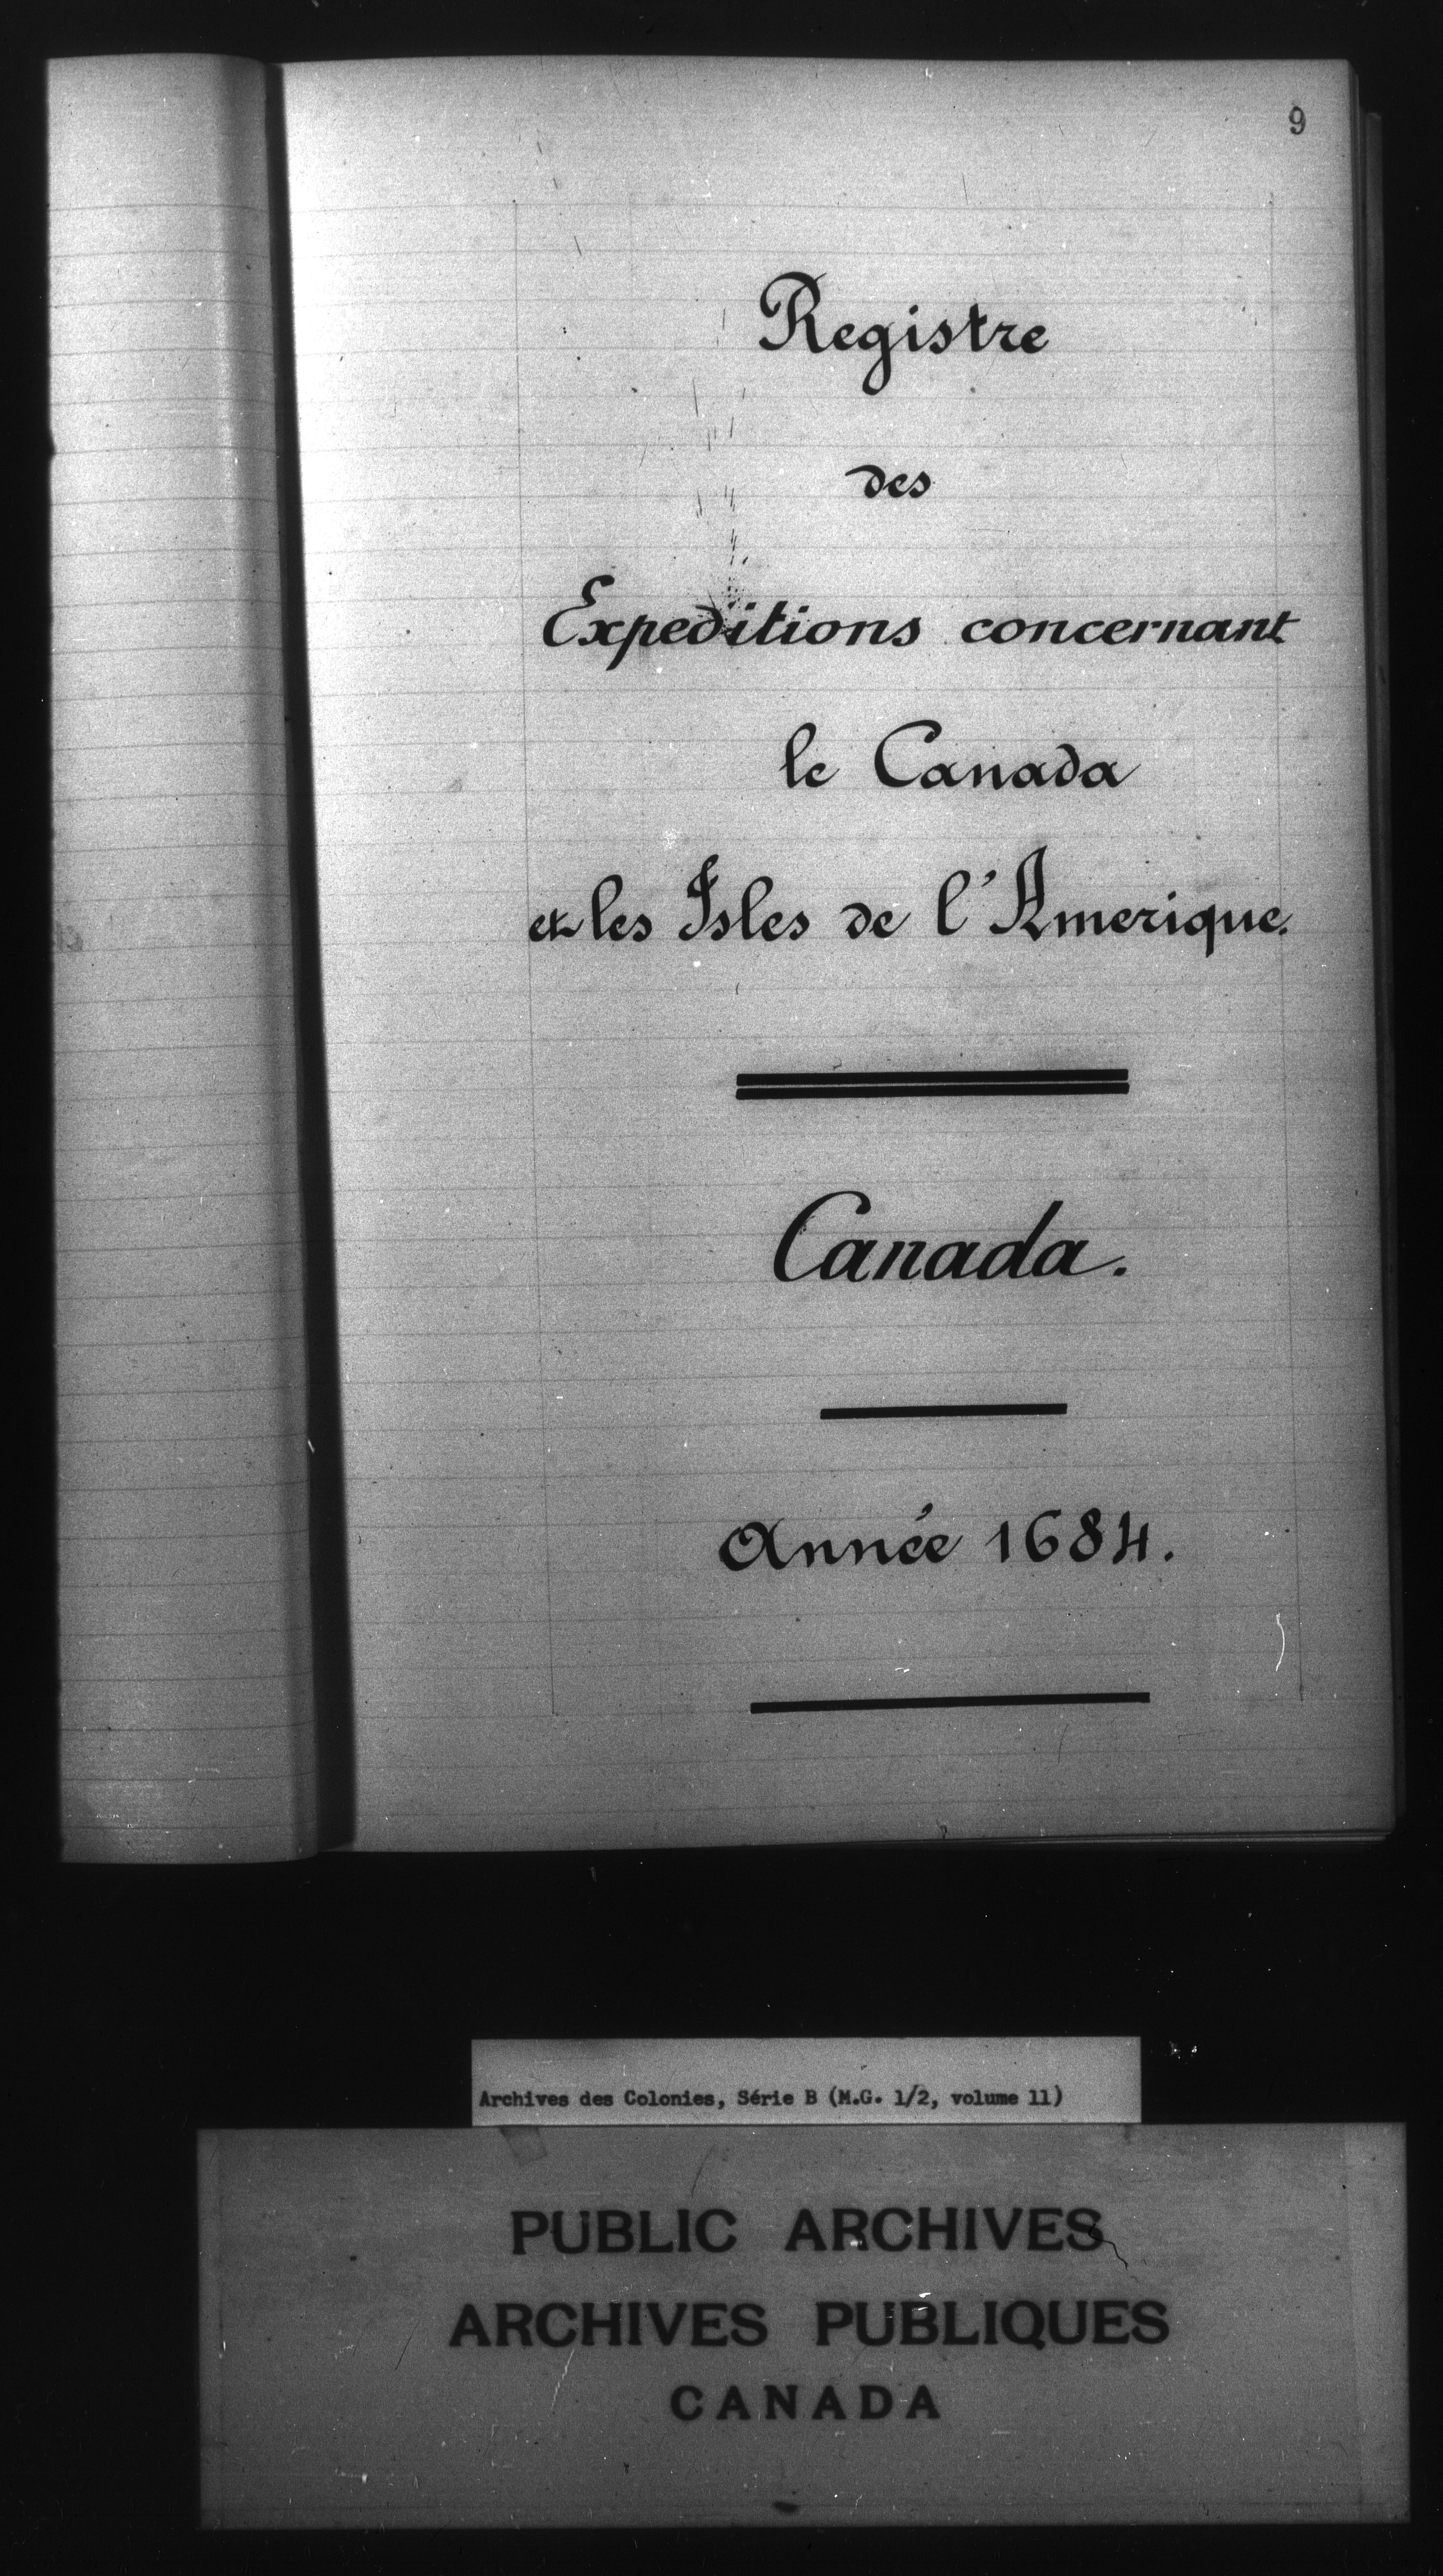 9
Registre
des
Expeditions concernant
le Canada
et les Isles de l'Amerique.
Canada.
Année 1684.
Archives des Colonies, Série B (M.G. 1/2, volume 11)
PUBLIC ARCHIVES
ARCHIVES PUBLIQUES
CANADA